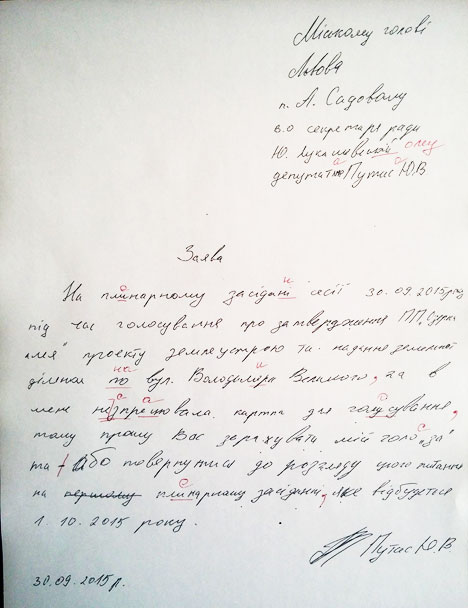 Міському голові
Львова
п. А. Садовому
в.о секретаря ради
Ю. Лукашевскій ому
депутатию а Путас а Ю.В
Заява
На плинарному е засідані н сесії 30.09.2015 року
під час голосування про затвердження ПП
проекту землеустрою та надання земельної
ділянки по на вул. Володимира и Великого, а в
мене не спрацювала картка для голосування,
тому прошу Вас зарахувати мій голос "за"
та Або повернутися до розгляду цього питання
на першому плінарному е засіданні, яке відбудеться
1.10.2015 року.
Путас Ю.В.
30.09.2015 р.